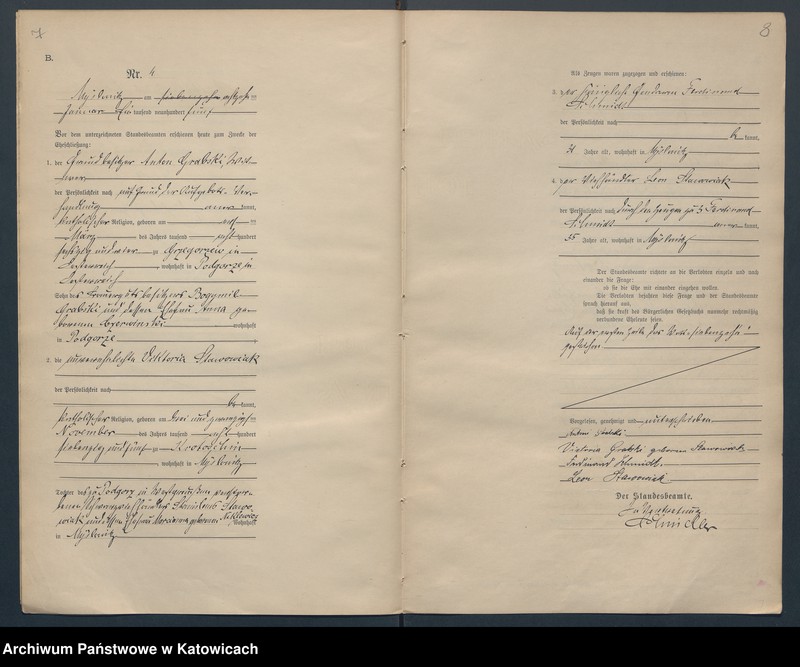 7
B.
Nr. 4
Myslowitz am siebenzehn achtzehn ten
Januar ein tausend neunhundert fünf
Vor dem unterzeichneten Standesbeamten erschienen heute zum Zwecke der
Eheschließung:
1. der Grundbesitzer Anton Grabski, Wit-
wer
der Persönlichkeit nach auf Grund der Aufgebots Ver-
handlung aner kannt,
katholischer Religion, geboren am
März des Jahres tausend acht hundert
sechzig und vier in Grzegorzew in
Oesterreich wohnhaft in Podgorze in
Oesterreich
Sohn des Bogumil
Grabski und dessen Ehefrau Anna ge-
borenen Czerwinski wohnhaft
in Podgorze
2. die unverehelichte Viktoria Stawowiak
der Persönlichkeit nach
be kannt,
katholischer Religion, geboren am drei und zwanzigsten
November des Jahres tausend acht hundert
siebenzig und fünf in Krotoschin
wohnhaft in Myslowitz
Tochter des zu Podgorz in Westpreußen verstorbe-
nen Stanislaus Stawo-
wiak und dessen Ehefrau geborenen
wohnhaft
in Myslowitz
8
Als Zeugen waren zugezogen und erschienen:
3. der Königliche Ferdinand
Schmidt
der Persönlichkeit nach
be kannt,
Jahre alt, wohnhaft in Myslowitz
4. der Viehhändler Leon Stawowiak
der Persönlichkeit nach durch den Zeugen zu 3 Ferdinand
Schmidt aner kannt,
35 Jahre alt, wohnhaft in Myslowitz
Der Standesbeamte richtete an die Verlobten einzeln und nach
einander die Frage:
ob sie die Ehe mit einander eingehen wollen.
Die Verlobten bejahten diese Frage und der Standesbeamte
sprach hierauf aus,
daß sie kraft des Bürgerlichen Gesetzbuchs nunmehr rechtmäßig
verbundene Eheleute seien.
Auf der ersten Zeile das Wort „siebenzehn"
gestrichen
Vorgelesen, genehmigt und unterschrieben
Anton Grabski
Victoria Grabski geborene Stawowiak
Ferdinand Schmidt.
Leon Stawowiak
Der Standesbeamte.
In Vertretung
Archiwum Państwowe w Katowicach